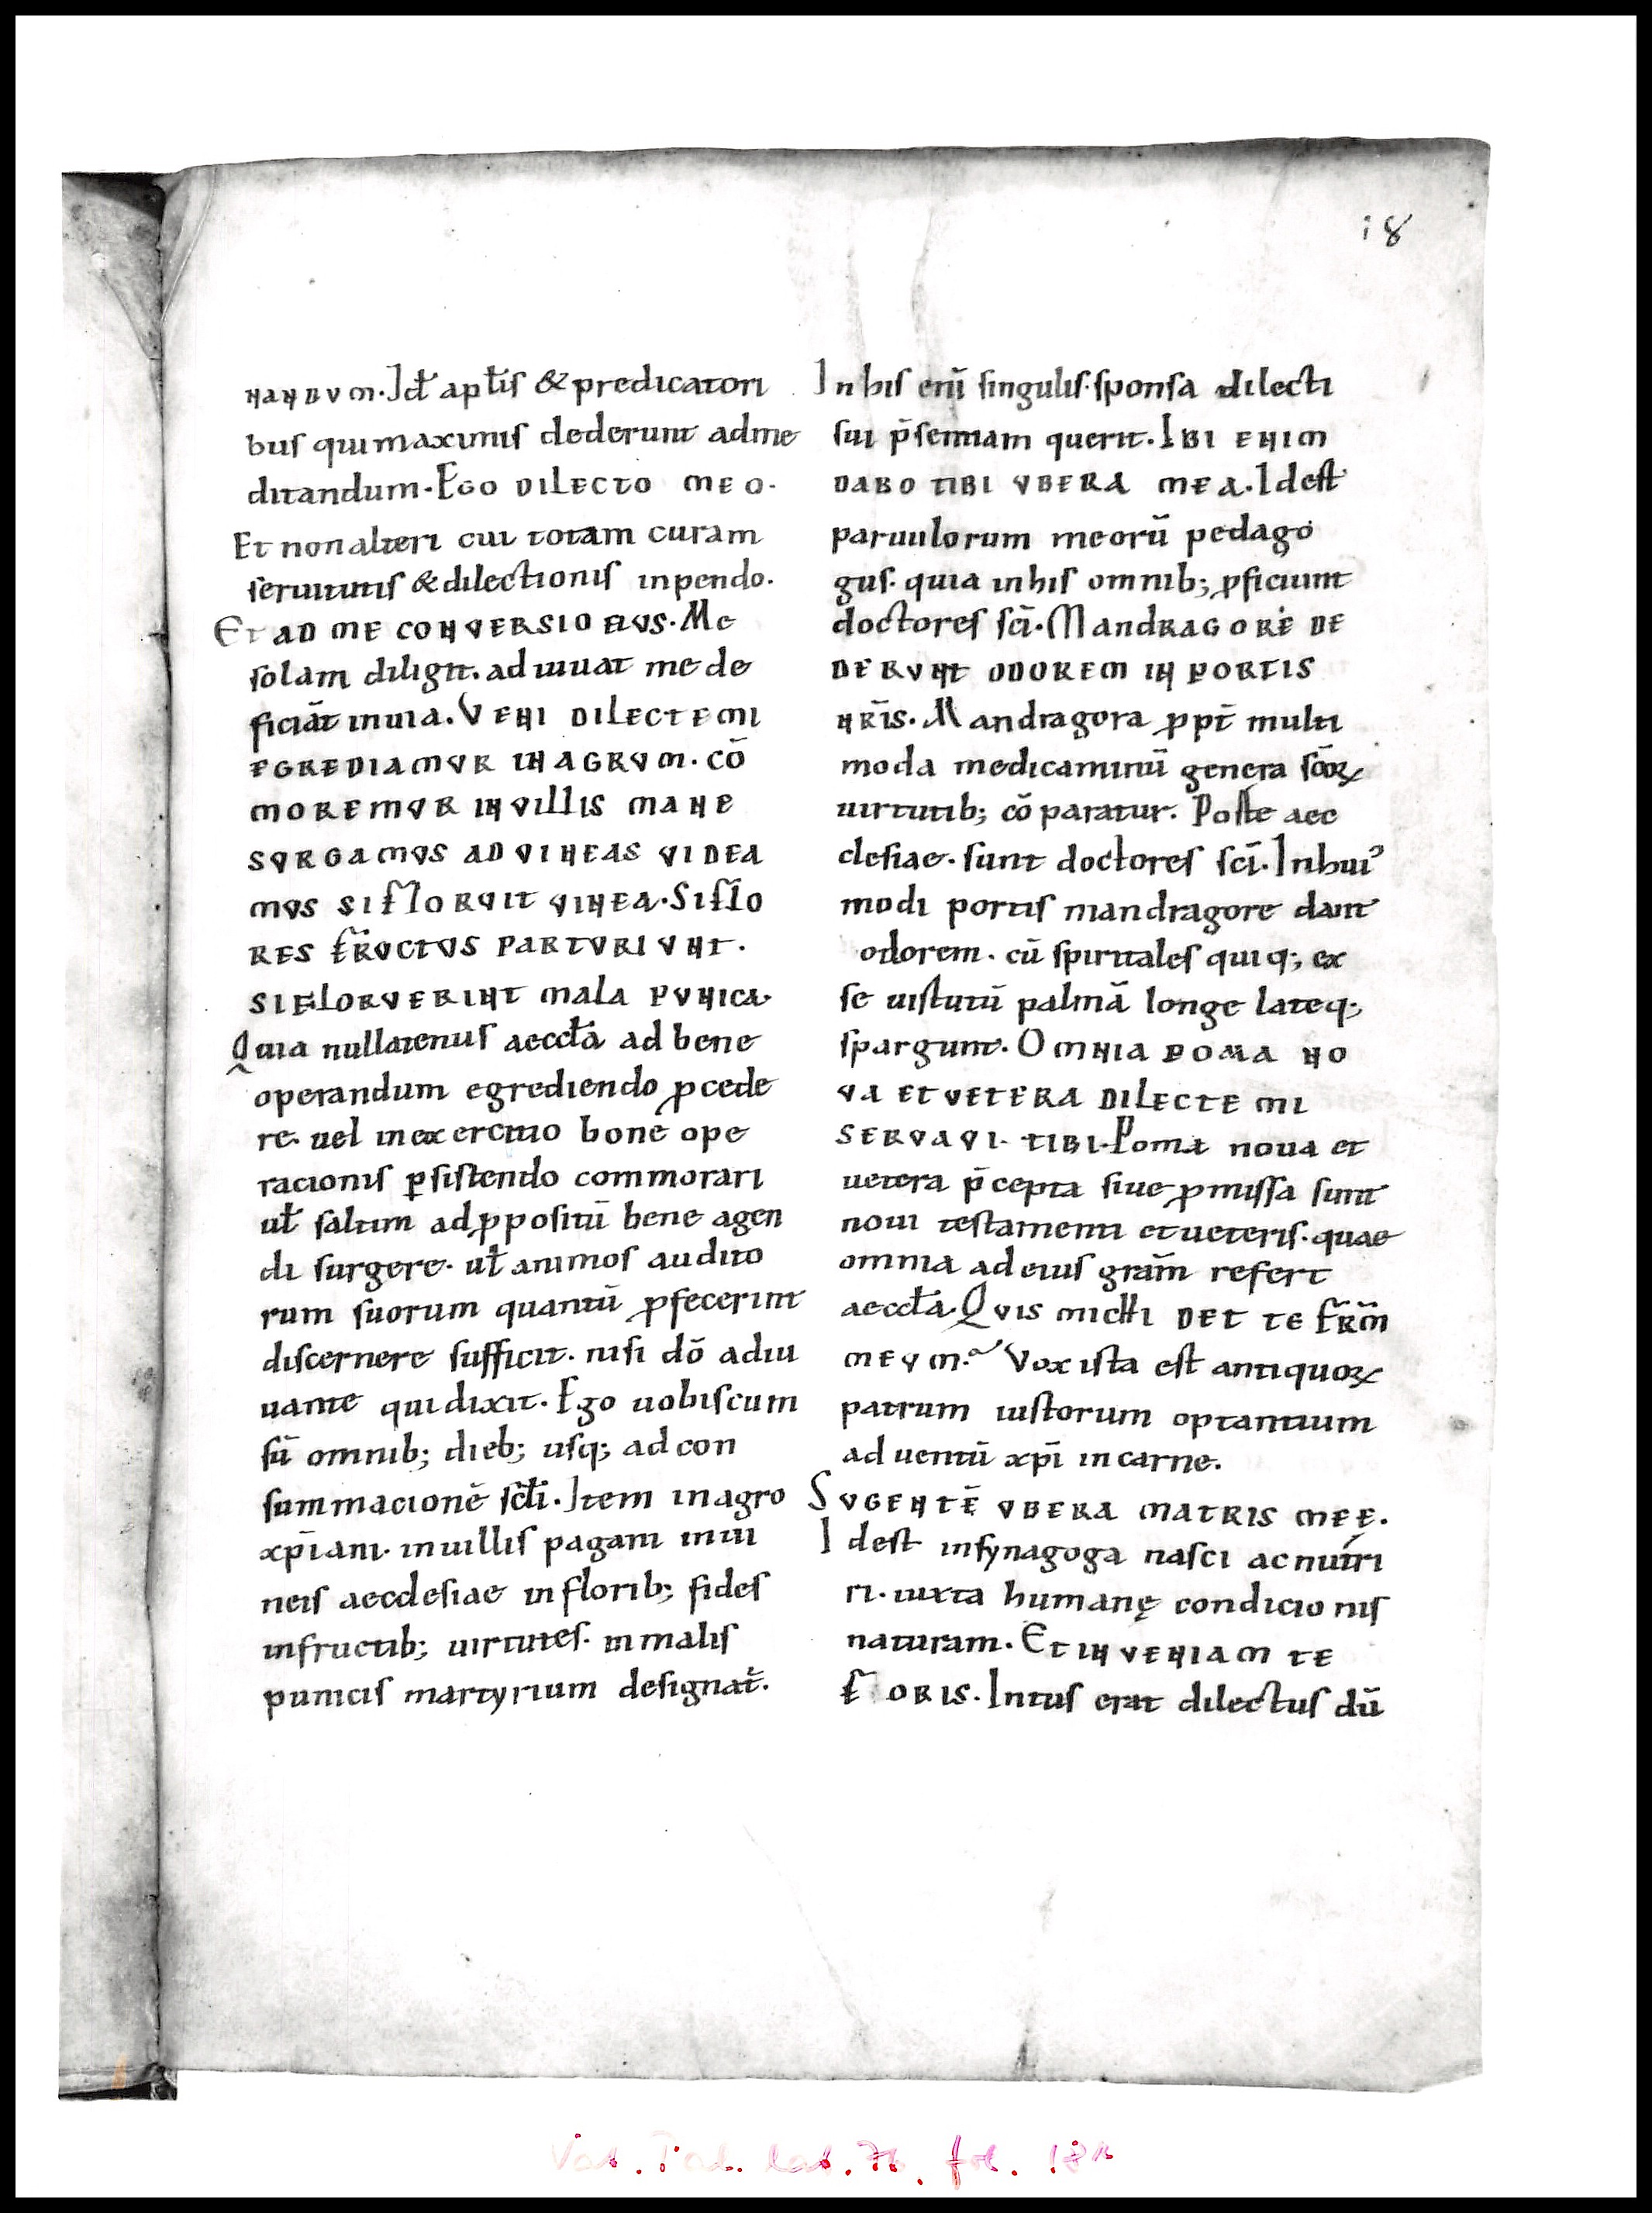 18
NANDVM. Id÷ apl̄is & predicatori
bus qui maximis dederunt adme
ditandum. EGO DILECTO MEO.
Et non alteri cui totam curam
seruitutis & dilectionis inpendo.
ET AD ME CONVERSIO EIVS. Me
solam diligit. ad iuuat me de
ficiāt in uia. VENI DILECTE MI
EGREDIAMVR IN AGRVM. CŌ
MOREMVR IN VILLIS MANE
SVRGAMVS AD VINEAS VIDEA
MVS SI FLORVIT VINEA. SI FLO
RES FRVCTVS PARTVRIVNT.
SI FLORVERINT MALA PVNICA.
Quia nullatenus aeccl̄a ad bene
operandum egrediendo ꝓcede
re. uel in exercitio bone ope
racionis ꝑsistendo commorari
ul̄ saltim ad ꝓpositū bene agen
di surgere. ul̄ animos audito
rum suorum quantū ꝓfecerint
discernere sufficit. nisi dō adiu
uante qui dixit. Ego uobiscum
sū omnib; dieb; usq; ad con
summacionē scl̄i. Item in agro
xp̄iani. in uillis pagani in ui
neis aecclesiae in florib; fides
in fructib; uirtutes. in malis
punicis martyrium designat̄.
In his enī singulis. sponsa dilecti
sui p̄sentiam querit. IBI ENIM
DABO TIBI VBERA MEA. Idest
paruulorum meorū pedago
gus. quia in his omnib; ꝓficiunt
doctores sc̄i. MANDRAGORE DE
DERVNT ODOREM IN PORTIS
NR̄IS. Mandragora ꝓpt̄ multi
moda medicaminū genera sc̄oꝝ
uirtutib; cōparatur. Porte aec
clesiae. sunt doctores sc̄i. In huiꝰ
modi portis mandragore dant
odorem. cū spiritales quiq; ex
se uistutū palmā longe lateq;
spargunt. OMNIA POMA NO
VA ET VETERA DILECTE MI
SERVAVI. TIBI. Poma noua et
uetera p̄cepta siue ꝓmissa sunt
noui testamenti et ueteris. quae
omnia ad eius grām refert
aeccl̄a. QVIS MICHI DET TE FR̄M
MEVM. Vox ista est antiquoꝝ
patrum iustorum optantium
ad uentū xp̄i in carne.
SVGENTĒ VBERA MATRIS MEĘ.
Idest in synagoga nasci ac nutri
ri. iuxta humanę condicionis
naturam. ET INVENIAM TE
FORIS. Intus erat dilectus dū
Vat. Pal. lat. 76. fol. 18r